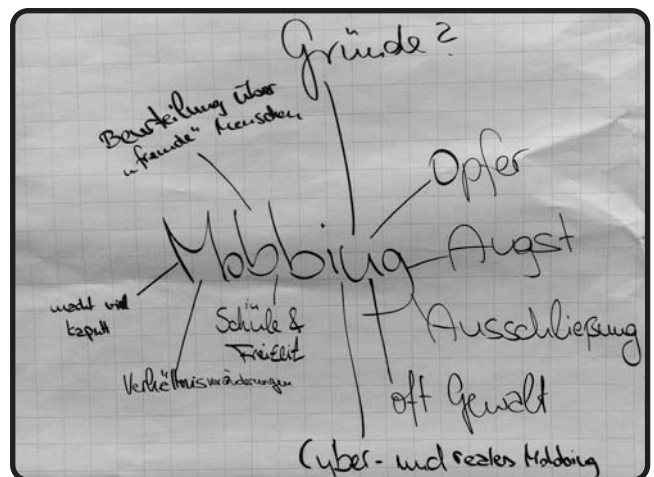 Gründe?
Beurteilung über
"fremde" Menschen
Opfer
Mobbing
Angst
macht viel
kaputt
in
Schule &
Freizeit
Ausschließung
Verhältnisveränderungen
oft Gewalt
Cyber- und reales Mobbing